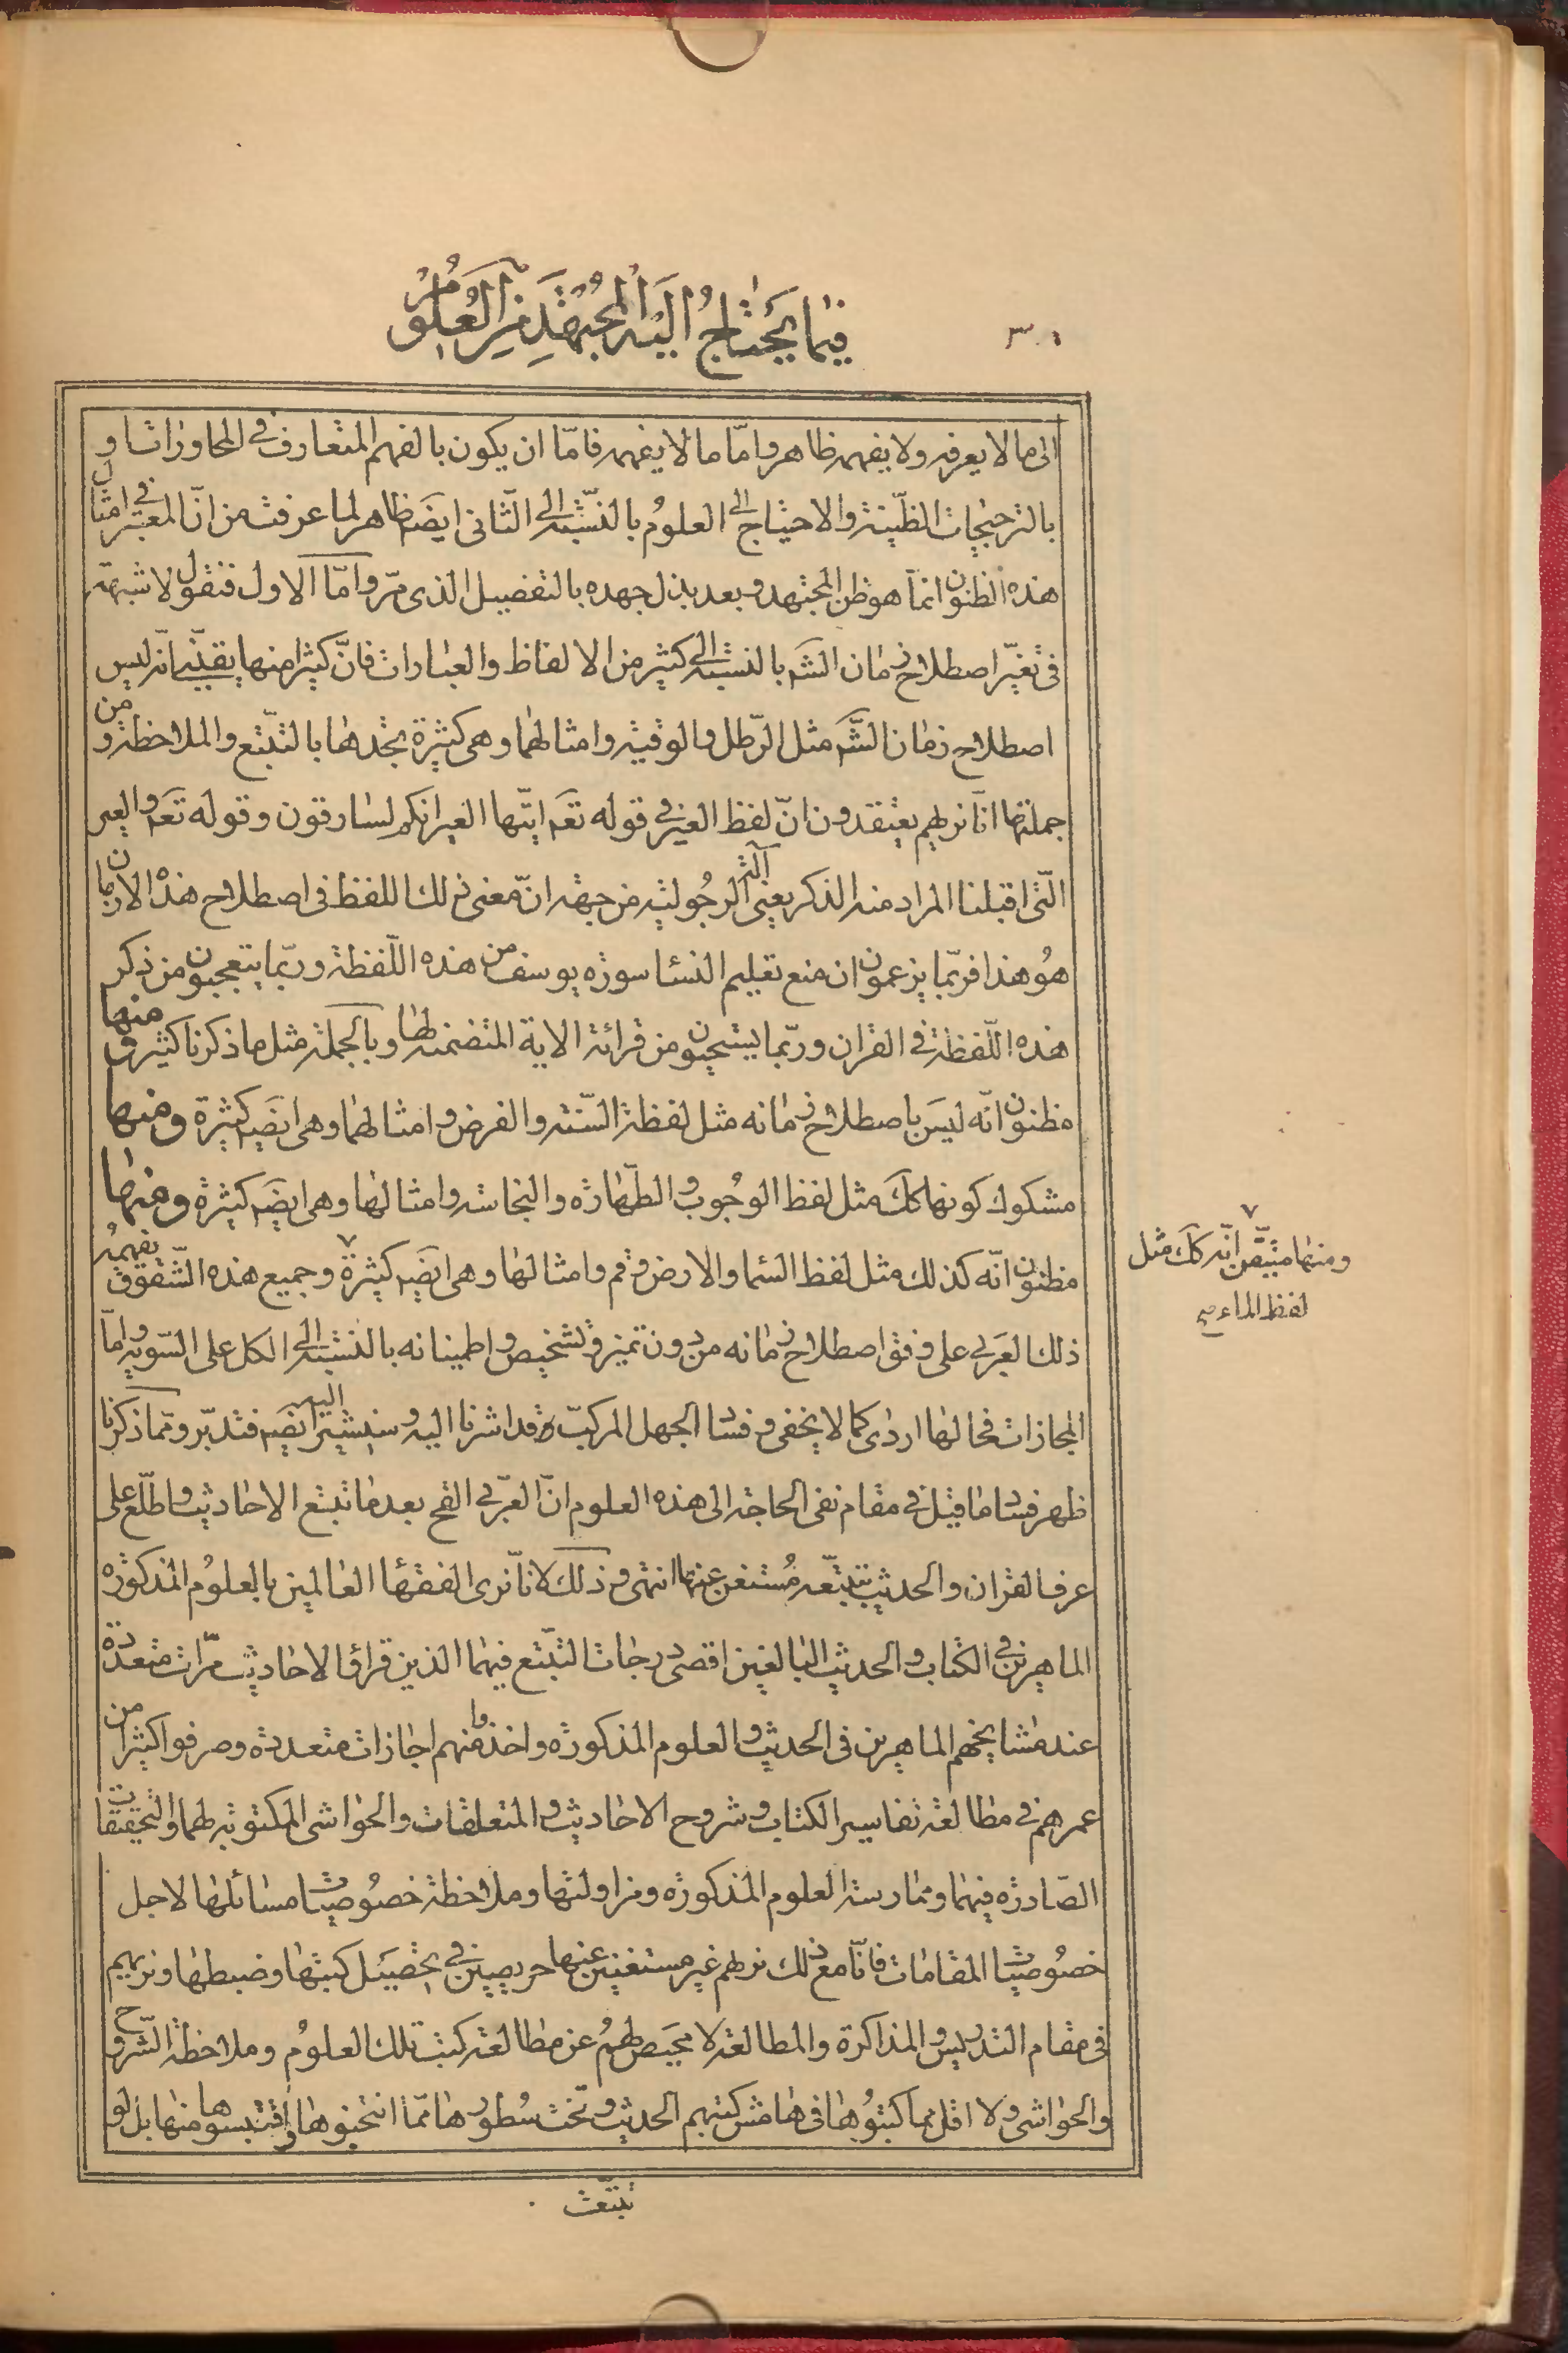 ٣٠١
فيما يحتاج اليه المجتهد من العلوم
الى ما لا يعرفه ولا يفهمه ظاهر واما ما لا يفهمه فامّا ان يكون بالفهم المتعارف في المحاورات او
بالترجيحات الظنّية والاحتياج الى العلوم بالنّسبة الى الثّانى ايضَم ظاهر لما عرفت من انّ المعتبر في امثال
هذه الظنون انّما هو ظن المجتهد وبعد بذل جهده بالتفصيل الذى مرّ وامّا الاول فنقول لا شبهة
فى تغيّر اصطلاح زمان الشَم بالنسبة الى كثير من الالفاظ والعبارات فانّ كثيرا منها يقينيّا انّه ليس
اصطلاح زمان الشَّم مثل الرّطل والوقية وامثالهما وهى كثيرة يجدها بالتتبّع والملاحظة ومن
جملتها انّا نريهم يعتقدون انّ لفظ العير في قوله تعَم ايّتها العير انكم لسارقون وقوله تعَم والعير
الّتى اقبلنا المراد منه الذكر يعنى آلة الرجُولية من جهة انّ معنى ذلك اللفظ فى اصطلاح هذه الازمان
هُو هذا فربّما يزعمون ان منع تعليم النسّا سورة يوسف من هذه اللّفظة وربّما يتعجبون من ذكر
هذه اللّفظة في القران وربّما يستحيون من قرائة الاية المتضمنة لها وبالجملة مثل ما ذكرنا كثيرة ومنها
مظنون انّه ليسَ باصطلاح زمانه مثل لفظة السّنة والفرض وامثالهما وهى ايضَم كثيرة ومنها
مشكوك كونها كَكَ مثل لفظ الوجُوب والطّهارة والنجاسة وامثالها وهى ايضَم كثيرة ومنها
مظنون انّه كذلك مثل لفظ السّما والارض وقم وامثالها وهى ايضَم كثيرة ٧ وجميع هذه الشّقوق يفهمُه
٧
ومنها متيقّن انّه كَكَ مثل
لفظ الماء صح
ذلك العَربى على وفق اصطلاح زمانه من دون تميز وتشخيص واطمينانه بالنسبة الى الكل على السّوية وامّا
المجازات فحالها اردى كما لا يخفى وفساد الجهل المركبّ قد اشرنا اليه وسنشير اليه ايضَم فتدبّر وممّا ذكرنا
ظهر فساد ما قيل في مقام نفى الحاجة الى هذه العلوم انّ العربّى القح بعد ما تتبع الاحاديث واطّلع على
عرف القران والحديث بتتبّعه مُستغن عنها انتهى وذلك لانّا نرى الفقهّا العالمين بالعلوُم المذكورة
الماهرين في الكتاب والحديث البالغين اقصى درجات التّبّتع فيهما الذين قراؤا الاحاديث مرّات متعدّدة
عند مشايخهم الماهرين فى الحديث والعلوم المذكورة واخذوا منهم اجازات متعددة وصرفوا كثيرا من
عمرهم في مطالعة تفاسير الكتاب وشروح الاحاديث والمتعلقات والحواشى المكتوبة لهما والتحقيقات
الصّادرة فيهما وممارسة العلوم المذكورة ومزاولتها وملاحظة خصُوصيات مسائلها لاجل
خصُوصيات المقامات فانّا مع ذلك نريهم غير مستغنين عنها حريصين في تحصَيل كتبها وضبطها ونريهم
فى مقام التدريس والمذاكرة والمطالعة لا محيَص لهمُ عن مطالعة كتب تلك العلوُم وملاحظة الشّروح
والحواشى ولا اقل مما كتبوُها فى هامش كتبهم الحديث وتحت سُطورها ممّا انتخبوها واقتبسوها منها بل لو
تتبّعت